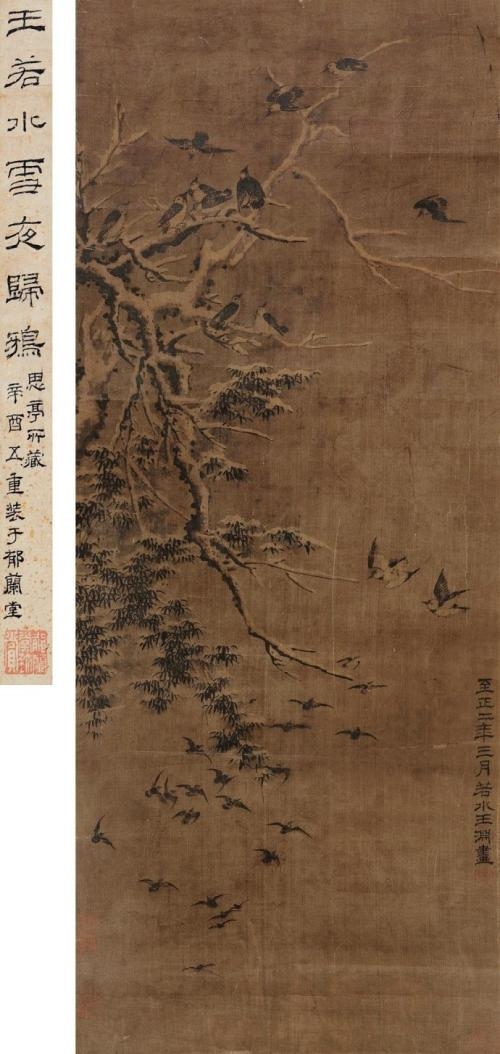 王若水雪夜歸鴉
思亭所藏
辛酉五重裝于郁蘭堂
至正二年三月若水王淵畫